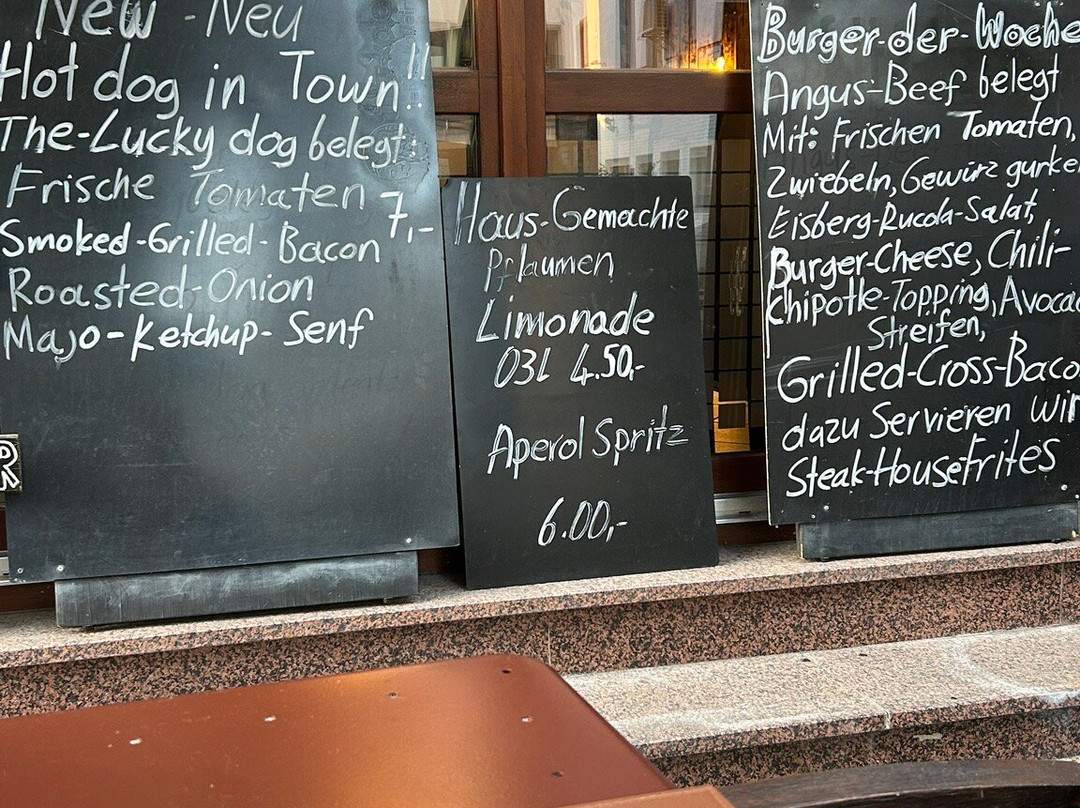 New - Neu
Hot dog in Town!!
The-Lucky dog belegt:
Frische Tomaten
7,-
Smoked-Grilled-Bacon
Roasted-Onion
Majo-Ketchup-Senf
Haus-Gemachte
Pflaumen
Limonade
03l 4.50,-
Aperol Spritz
6.00,-
Burger-der-Woche
Angus-Beef belegt
Mit: Frischen Tomaten,
Zwiebeln, Gewürz gurken
Eisberg-Rucola-Salat,
Burger-Cheese, Chili-
Chipotle-Topping, Avocad
Streifen,
Grilled-Cross-Baco
dazu Servieren wir
Steak-Housefrites
R